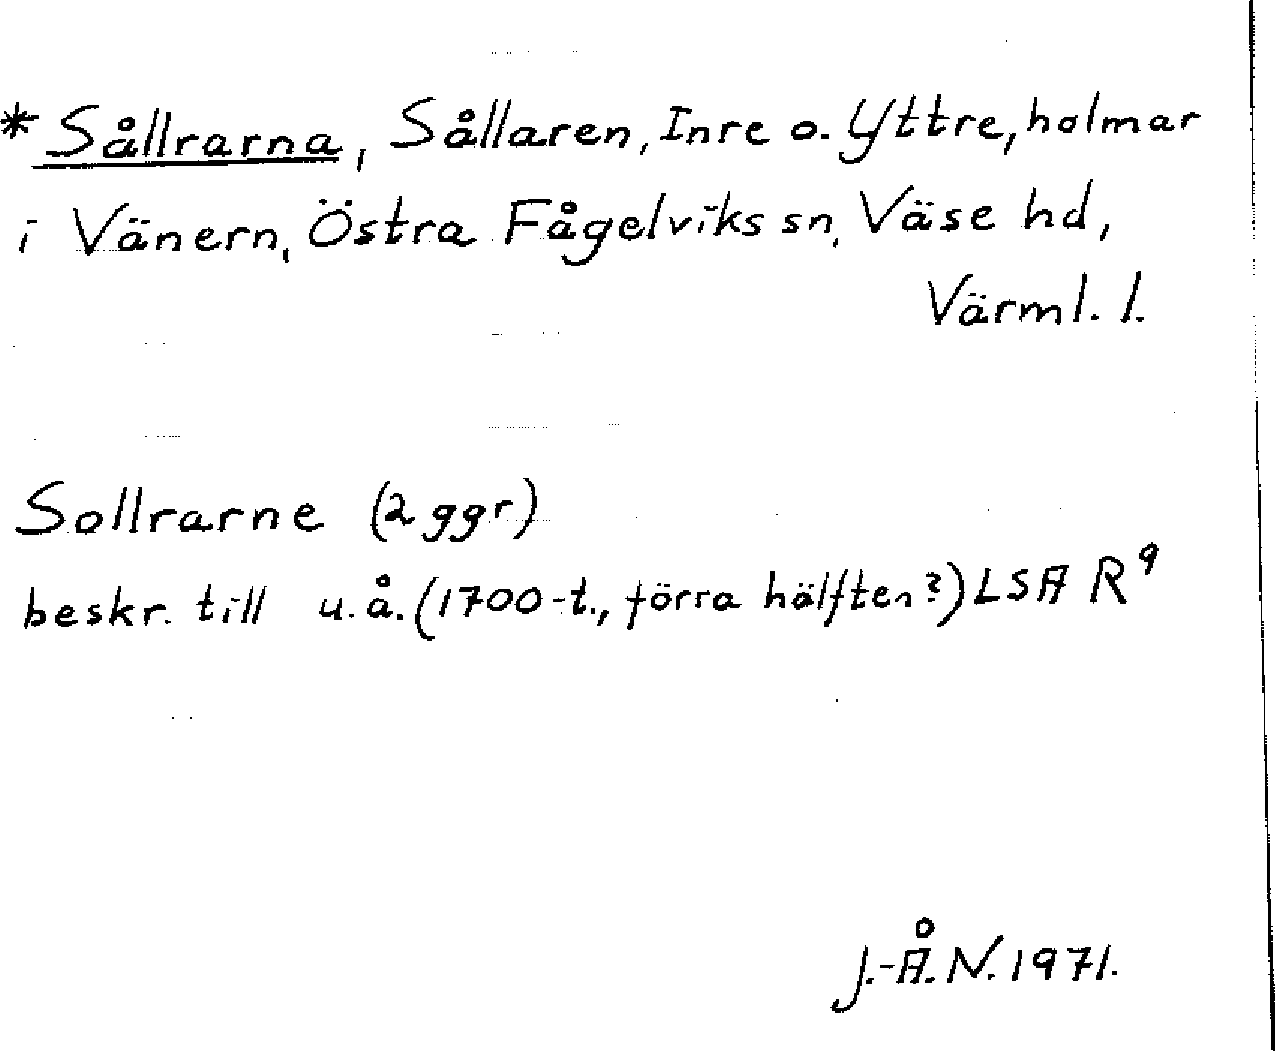 *Sållrarna, Sållaren, Inre o. Yttre, holmar
i Vänern, Östra Fågelviks sn, Väse hd,
Värml. l.
Sollrarne (2 ggr)
beskr. till u.å. (1700-t., förra hälften?) LSA R⁹
J.-Å. N. 1971.